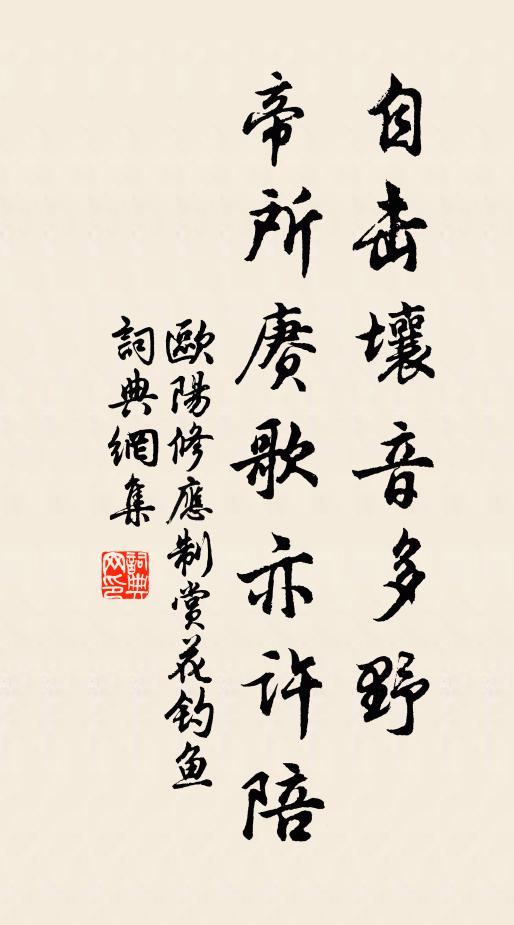 自击壤音多野
帝所赓歌亦许陪
歐陽修應制賞花釣魚
詞典網集
詞典
网印